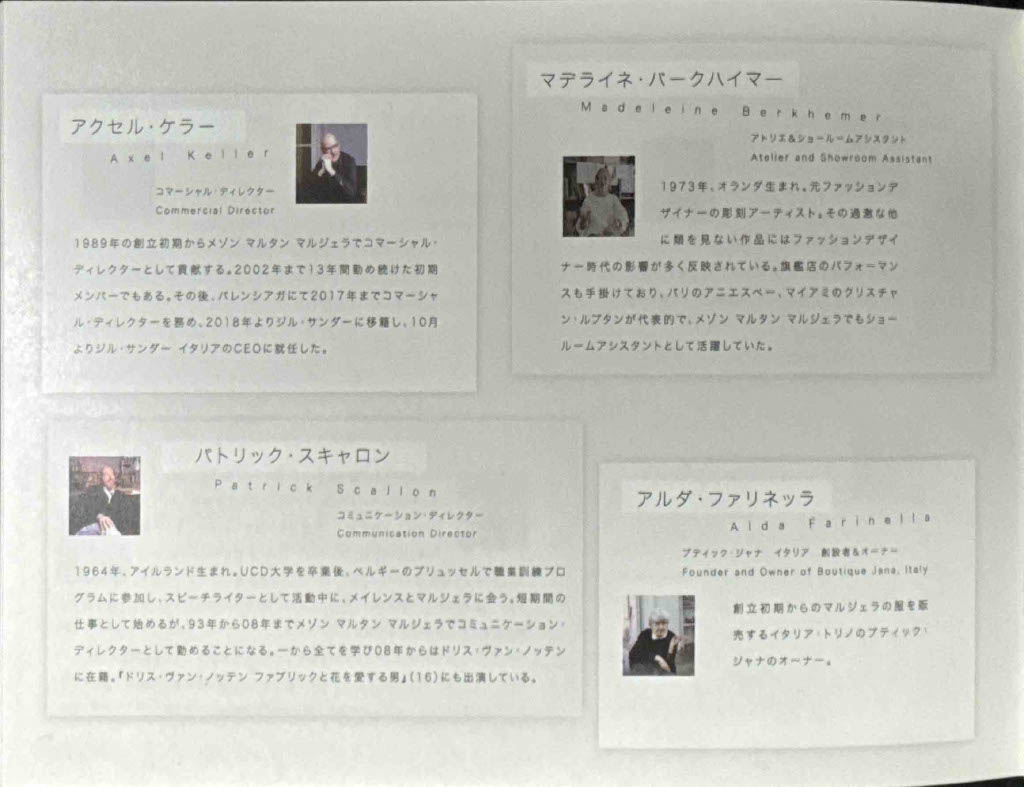 アクセル・ケラー
Axel Keller
コマーシャル・ディレクター
Commercial Director
1989年の創立初期からメゾン マルタン マルジェラでコマーシャル・
ディレクターとして貢献する。2002年まで13年間勤め続けた初期
メンバーでもある。その後、バレンシアガにて2017年までコマーシャ
ル・ディレクターを務め、2018年よりジル・サンダーに移籍し、10月
よりジル・サンダー イタリアのCEOに就任した。
マデライネ・バークハイマー
Madeleine Berkhemer
アトリエ&ショールームアシスタント
Atelier and Showroom Assistant
1973年、オランダ生まれ。元ファッションデ
ザイナーの彫刻アーティスト。その過激な他
に類を見ない作品にはファッションデザイ
ナー時代の影響が多く反映されている。旗艦店のパフォーマン
スも手掛けており、パリのアニエスベー、マイアミのクリスチャ
ン・ルブタンが代表的で、メゾン マルタン マルジェラでもショー
ルームアシスタントとして活躍していた。
パトリック・スキャロン
Patrick Scallon
コミュニケーション・ディレクター
Communication Director
1964年、アイルランド生まれ。UCD大学を卒業後、ベルギーのブリュッセルで職業訓練プロ
グラムに参加し、スピーチライターとして活動中に、メイレンスとマルジェラに会う。短期間の
仕事として始めるが、93年から08年までメゾン マルタン マルジェラでコミュニケーション・
ディレクターとして勤めることになる。一から全てを学び08年からはドリス・ヴァン・ノッテン
に在籍。『ドリス・ヴァン・ノッテン ファブリックと花を愛する男』(16)にも出演している。
アルダ・ファリネッラ
Alda Farinella
ブティック・ジャナ イタリア 創設者&オーナー
Founder and Owner of Boutique Jana, Italy
創立初期からのマルジェラの服を販
売するイタリア・トリノのブティック・
ジャナのオーナー。